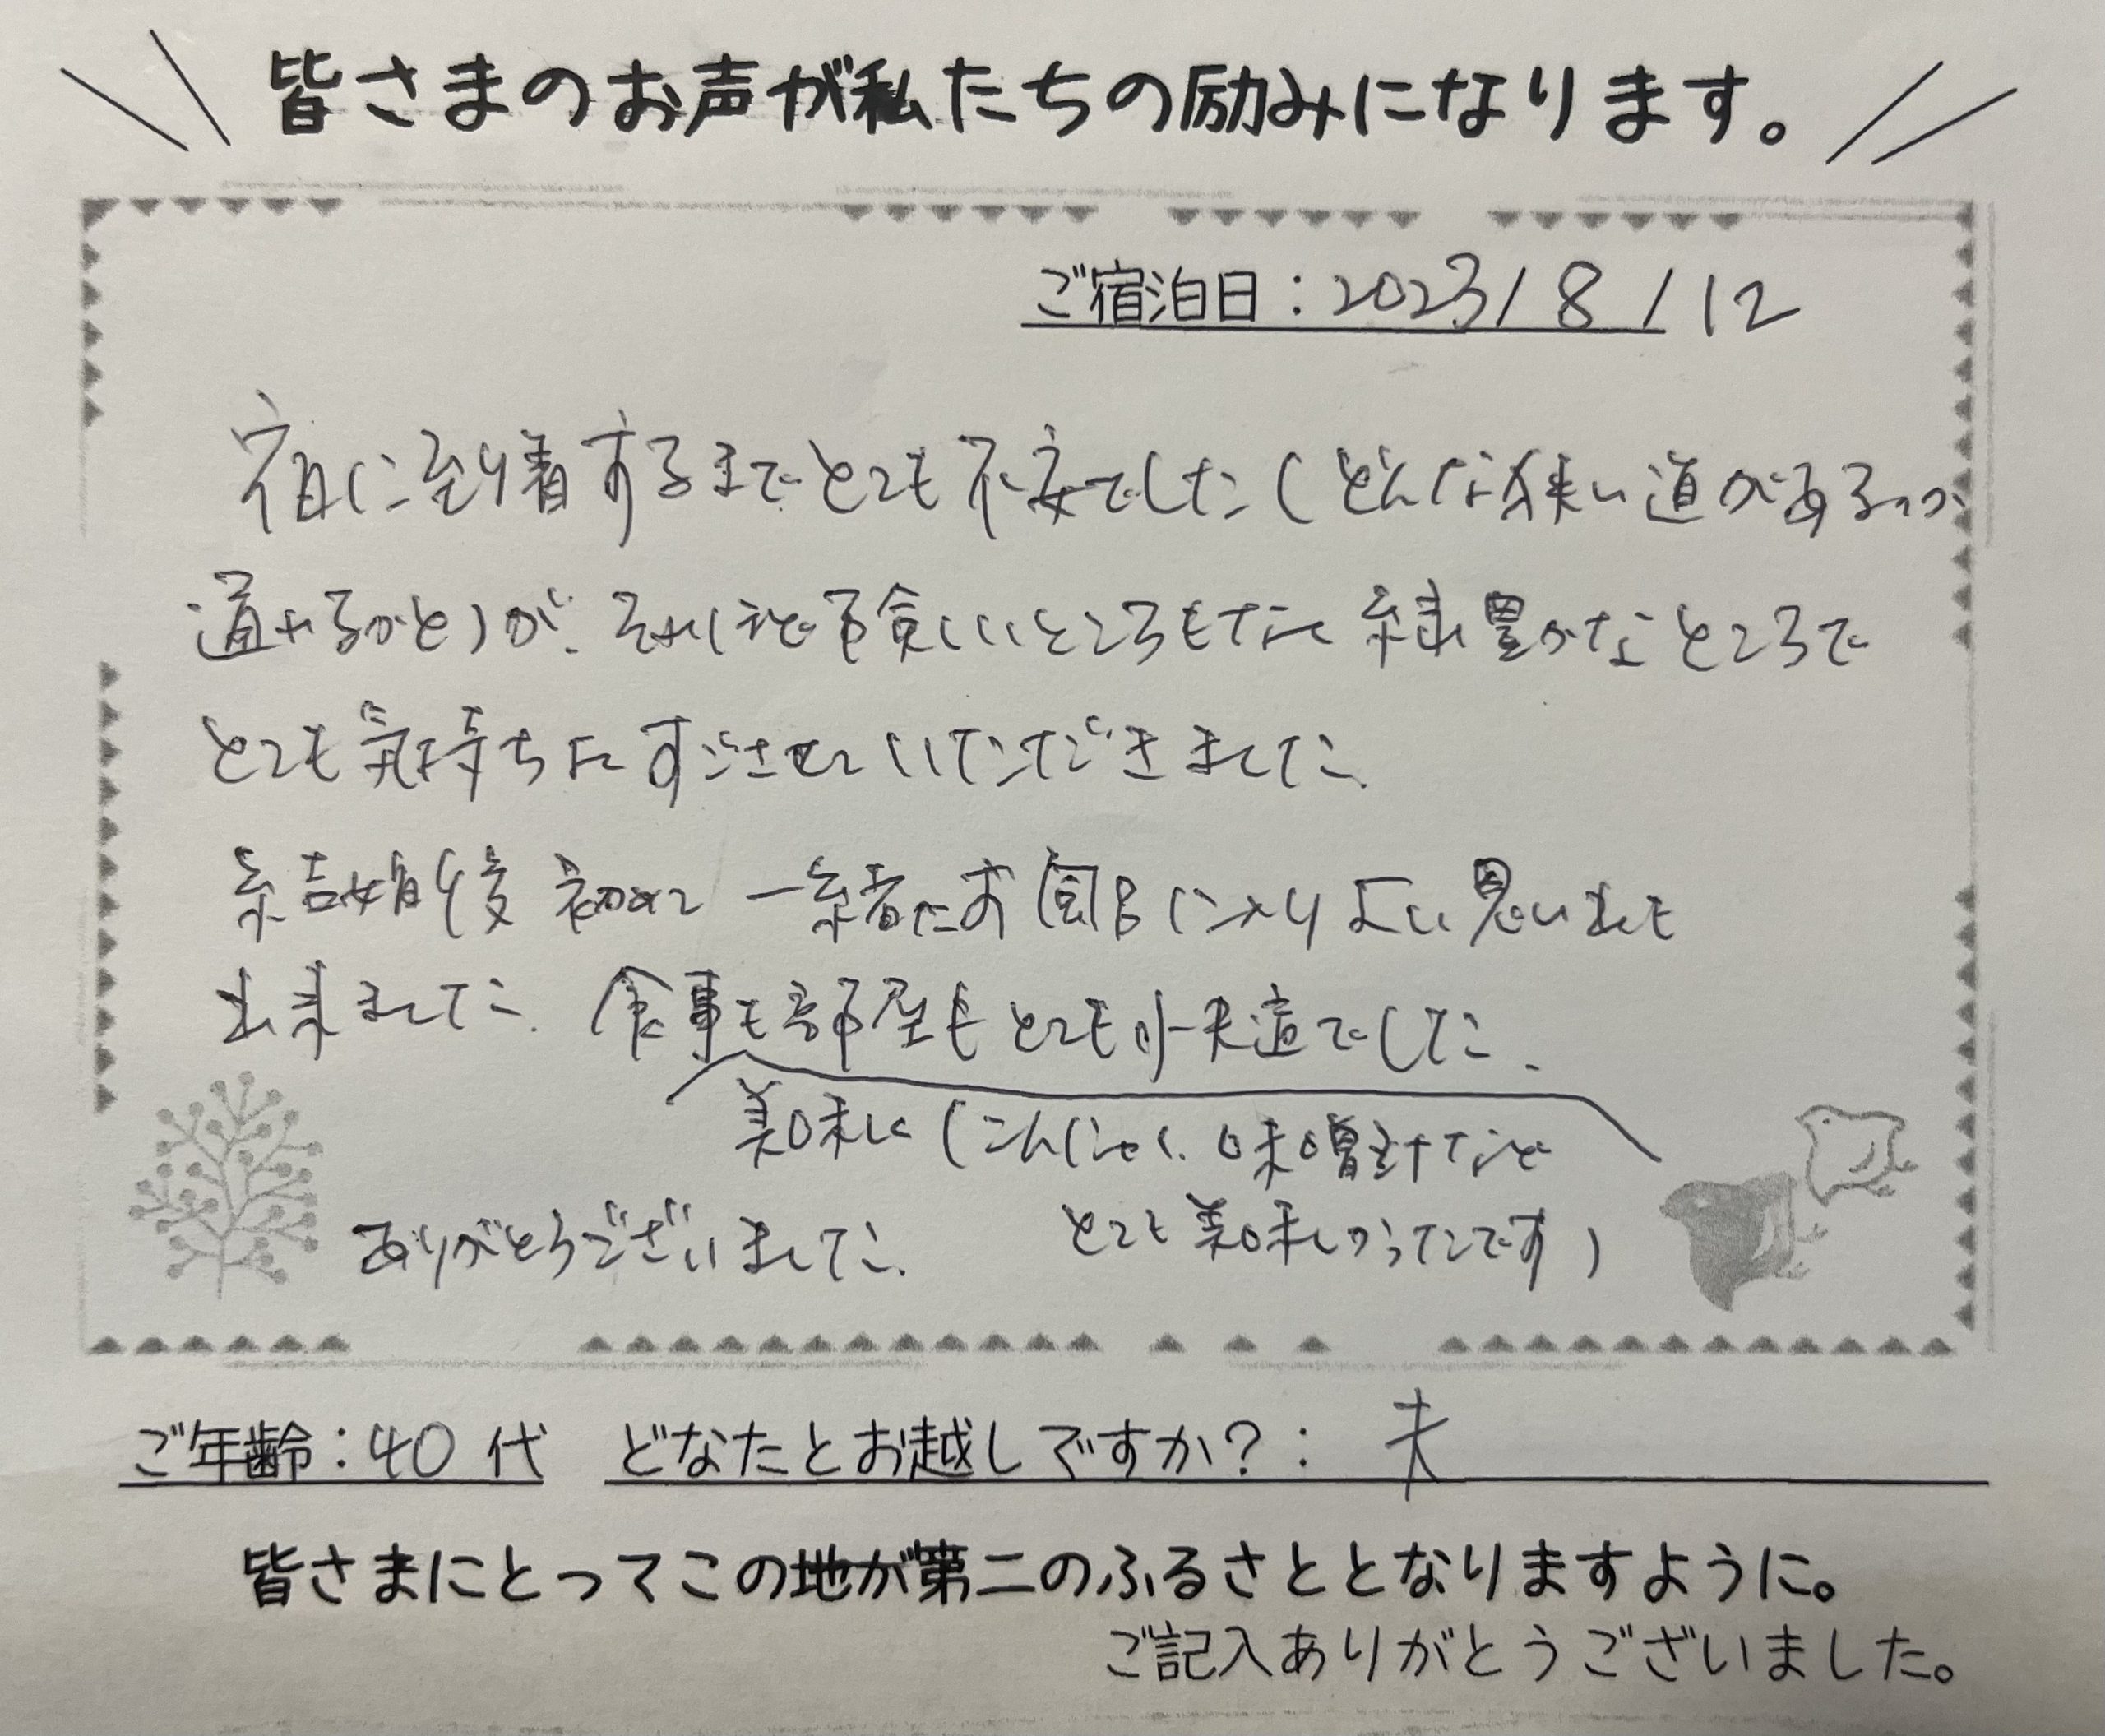 皆さまのお声が私たちの励みになります。
ご宿泊日：2023/8/12
宿に到着するまでとても不安でした（どんな狭い道があるのか
通れるかと）が、それほど険しいところもなく緑豊かなところで
とても気持ちにすごさせていただきました。
結婚後初めて一緒にお風呂に入りよい思い出も
出来ました。食事も部屋もとても快適でした。
美味しく（こんにゃく、味噌汁など
とても美味しかったです）
ありがとうございました。
ご年齢：40代 どなたとお越しですか？：夫
皆さまにとってこの地が第二のふるさととなりますように。
ご記入ありがとうございました。